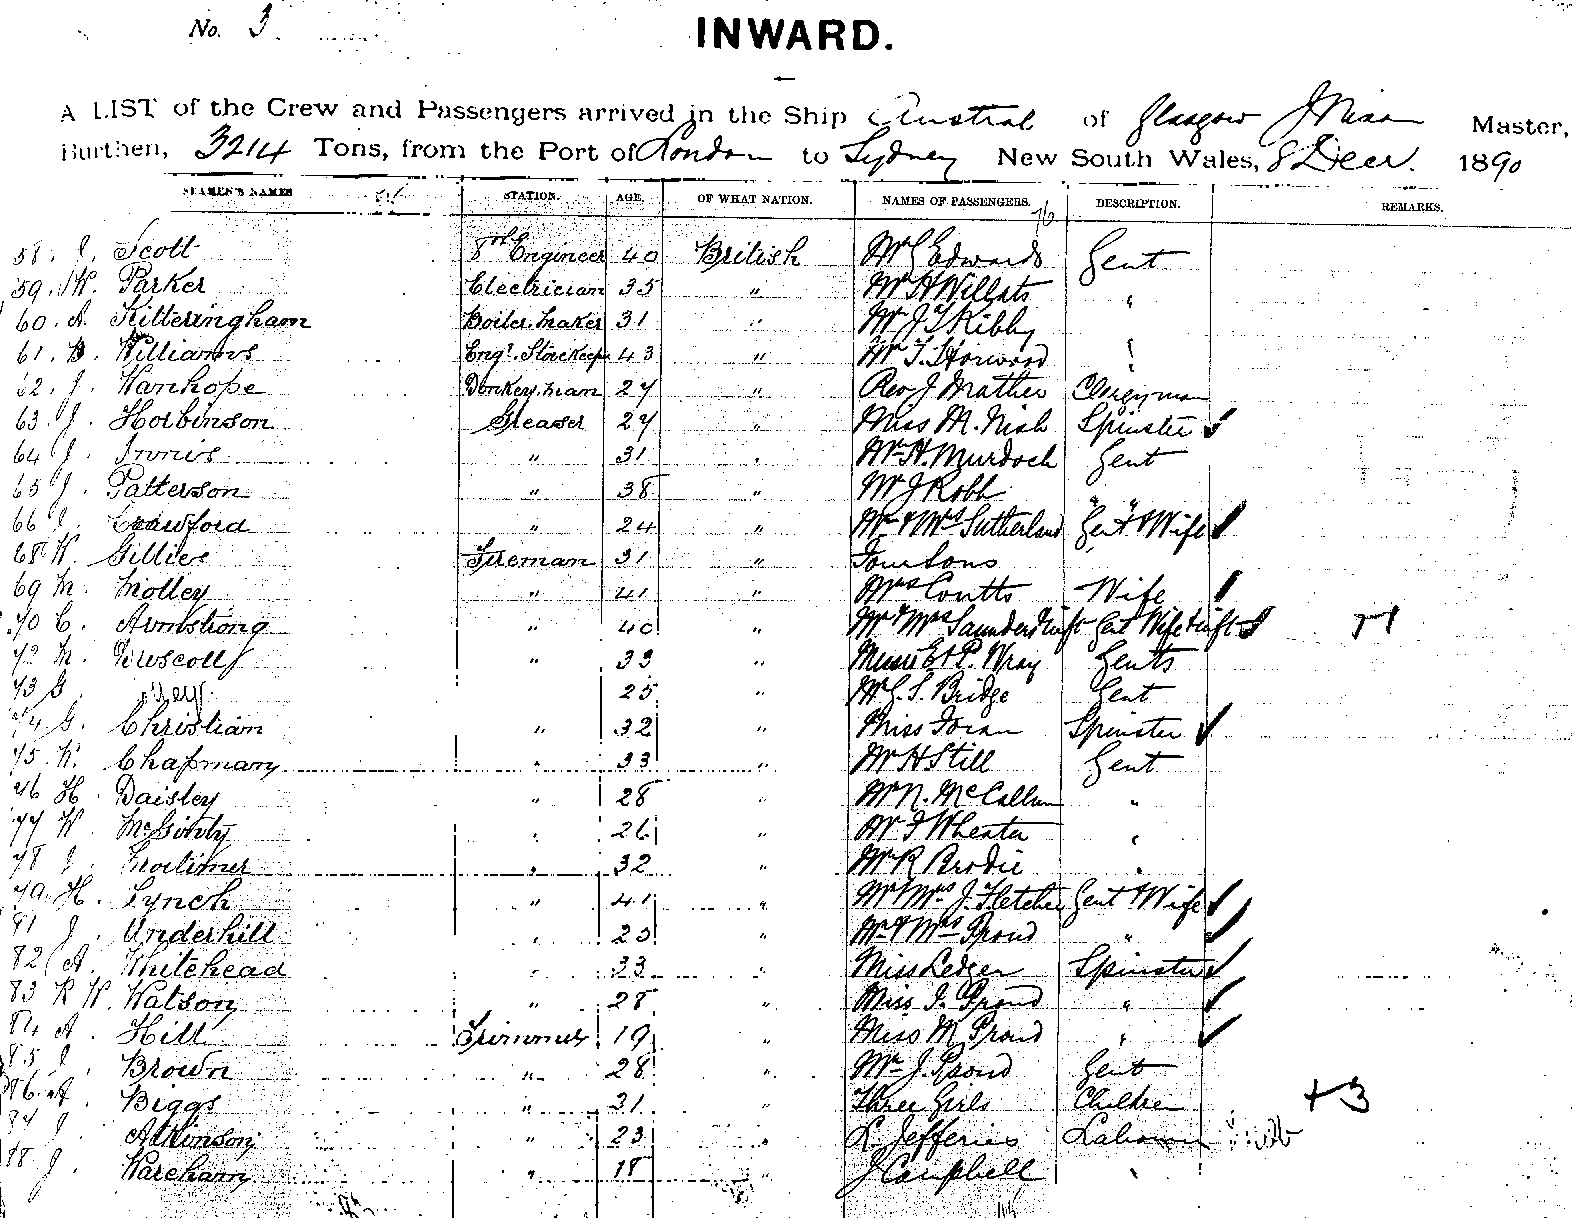 No. 3
INWARD.
A LIST of the Crew and Passengers arrived in the Ship Austral of Glasgow Master,
Burthen, 3214 Tons, from the Port of London to Sydney New South Wales, 8 Decr. 1890
SEAMEN'S NAMES STATION. AGE. OF WHAT NATION. NAMES OF PASSENGERS. DESCRIPTION. REMARKS.
58. J. Scott 8th Engineer 40 British Mr G Edwards Gent
59. W. Parker Electrician 35 " Mr H Willats "
60. A. Kitteringham Boiler maker 31 " Mr J T Kibby
61. B. Williams Engr. Storekeepr 43 " Mr T. Horwood "
62. J. Wanhope Donkeyman 27 " Rev J Mather Clergyman
63. J. Hobbinson Greaser 27 " Miss M. Nish Spinster ✓
64 J. Innnis " 31 " Mr H. Murdoch Gent
65 J. Patterson " 38 " Mr J Robb " "
66 J. Crawford " 24 " Mr & Mrs Sutherland Gent & Wife ✓
68 W. Gillies Fireman 31 " Four Sons
69 M. Molley " 41 " Mrs Coutts Wife ✓
70 C. Armstrong " 40 " Mr & Mrs Saunders & inft Gent Wife & inft ✓
72 M. Driscoll 33 " E & P. Wray Gents
73 G. 25 " Mr G. S. Bridge Gent
74 G. Christian " 32 " Miss Foran Spinster ✓
75 W. Chapman " 33 " Mr H Still Gent
76 H. Daisley " 28 " Mr N. McCallum "
77 W. McGinty " 26 " Mr J Wheater "
78 J. Mortimer " 32 " Mr R Brodie "
79 H. Lynch " 41 " Mr & Mrs J. Fletcher Gent & Wife ✓
81 J. Underhill " 23 " Mr & Mrs Proud " ✓
82 A. Whitehead " 33 " Miss Ledger Spinster ✓
83 R W. Watson " 28 " Miss J. Proud " ✓
84 A. Hill Trimmer 19 " Miss M Proud " ✓
85 J. Brown " 28 " Mr J. Proud Gent
86. A. Biggs " 31 " Three Girls Children + 3
87 J. Atkinson " 23 " L. Jefferies Labourer
88 J. Wareham " 18 " J Campbell "